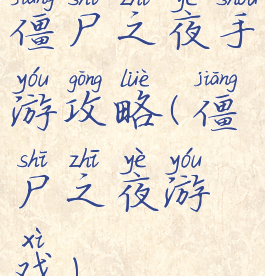 jiāng shī zhī yè shǒu
僵尸之夜手
yóu gōng lüè jiāng
游攻略(僵
shī zhī yè yóu
尸之夜游
xì
戏)